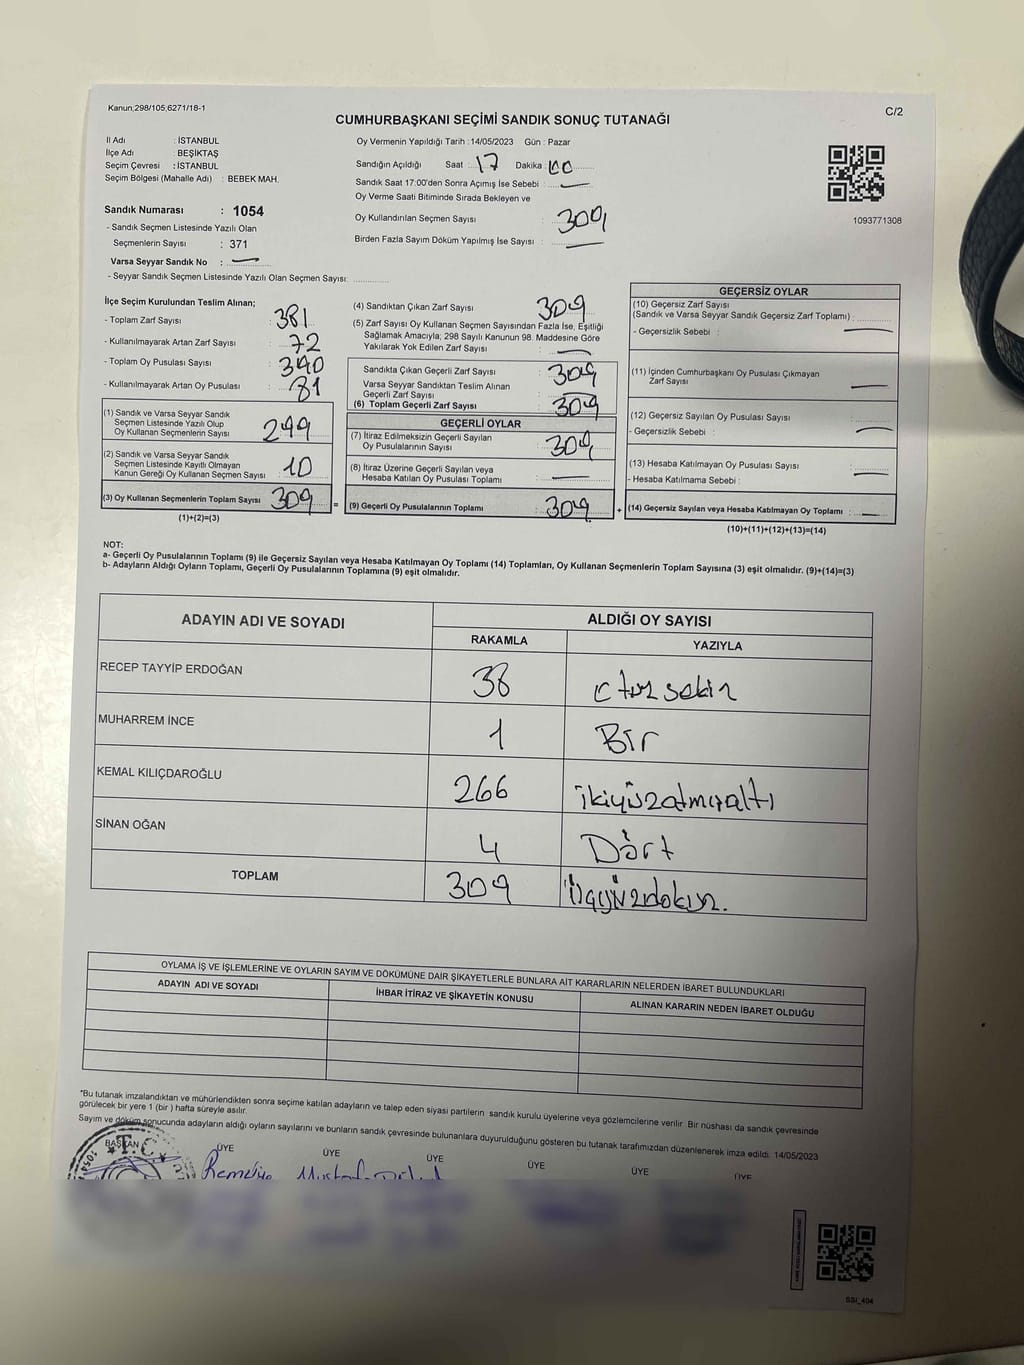 Kanun:298/105,6271/18-1
C/2
CUMHURBAŞKANI SEÇİMİ SANDIK SONUÇ TUTANAĞI
İl Adı : İSTANBUL
İlçe Adı : BEŞİKTAŞ
Seçim Çevresi : İSTANBUL
Seçim Bölgesi (Mahalle Adı) : BEBEK MAH.
Sandık Numarası : 1054
- Sandık Seçmen Listesinde Yazılı Olan
Seçmenlerin Sayısı : 371
Varsa Seyyar Sandık No : —
- Seyyar Sandık Seçmen Listesinde Yazılı Olan Seçmen Sayısı:
Oy Vermenin Yapıldığı Tarih :14/05/2023 Gün : Pazar
Sandığın Açıldığı Saat : 17 Dakika : 00
Sandık Saat 17:00'den Sonra Açımış İse Sebebi : —
Oy Verme Saati Bitiminde Sırada Bekleyen ve
Oy Kullandırılan Seçmen Sayısı : 309
Birden Fazla Sayım Döküm Yapılmış İse Sayısı : —
1093771308
İlçe Seçim Kurulundan Teslim Alınan;
- Toplam Zarf Sayısı : 381
- Kullanılmayarak Artan Zarf Sayısı : 72
- Toplam Oy Pusulası Sayısı : 390
- Kullanılmayarak Artan Oy Pusulası : 81
(1) Sandık ve Varsa Seyyar Sandık
Seçmen Listesinde Yazılı Olup
Oy Kullanan Seçmenlerin Sayısı : 299
(2) Sandık ve Varsa Seyyar Sandık
Seçmen Listesinde Kayıtlı Olmayan
Kanun Gereği Oy Kullanan Seçmen Sayısı : 10
(3) Oy Kullanan Seçmenlerin Toplam Sayısı : 309 =
(1)+(2)=(3)
(4) Sandıktan Çıkan Zarf Sayısı : 309
(5) Zarf Sayısı Oy Kullanan Seçmen Sayısından Fazla İse, Eşitliği
Sağlamak Amacıyla; 298 Sayılı Kanunun 98. Maddesine Göre
Yakılarak Yok Edilen Zarf Sayısı : —
Sandıkta Çıkan Geçerli Zarf Sayısı : 309
Varsa Seyyar Sandıktan Teslim Alınan
Geçerli Zarf Sayısı
(6) Toplam Geçerli Zarf Sayısı : 309
GEÇERLİ OYLAR
(7) İtiraz Edilmeksizin Geçerli Sayılan
Oy Pusulalarının Sayısı : 309
(8) İtiraz Üzerine Geçerli Sayılan veya
Hesaba Katılan Oy Pusulası Toplamı : —
(9) Geçerli Oy Pusulalarının Toplamı : 309 +
GEÇERSİZ OYLAR
(10) Geçersiz Zarf Sayısı
(Sandık ve Varsa Seyyar Sandık Geçersiz Zarf Toplamı) :
- Geçersizlik Sebebi : —
(11) İçinden Cumhurbaşkanı Oy Pusulası Çıkmayan
Zarf Sayısı : —
(12) Geçersiz Sayılan Oy Pusulası Sayısı :
- Geçersizlik Sebebi : —
(13) Hesaba Katılmayan Oy Pusulası Sayısı : —
- Hesaba Katılmama Sebebi :
(14) Geçersiz Sayılan veya Hesaba Katılmayan Oy Toplamı : —
(10)+(11)+(12)+(13)=(14)
NOT:
a- Geçerli Oy Pusulalarının Toplamı (9) ile Geçersiz Sayılan veya Hesaba Katılmayan Oy Toplamı (14) Toplamları, Oy Kullanan Seçmenlerin Toplam Sayısına (3) eşit olmalıdır. (9)+(14)=(3)
b- Adayların Aldığı Oyların Toplamı, Geçerli Oy Pusulalarının Toplamına (9) eşit olmalıdır.
ADAYIN ADI VE SOYADI ALDIĞI OY SAYISI
RAKAMLA YAZIYLA
RECEP TAYYİP ERDOĞAN 38 otuz sekiz
MUHARREM İNCE 1 Bir
KEMAL KILIÇDAROĞLU 266 ikiyüzatmışaltı
SİNAN OĞAN 4 Dört
TOPLAM 309 üçyüzdokuz.
OYLAMA İŞ VE İŞLEMLERİNE VE OYLARIN SAYIM VE DÖKÜMÜNE DAİR ŞİKAYETLERLE BUNLARA AİT KARARLARIN NELERDEN İBARET BULUNDUKLARI
ADAYIN ADI VE SOYADI İHBAR İTİRAZ VE ŞİKAYETİN KONUSU ALINAN KARARIN NEDEN İBARET OLDUĞU
*Bu tutanak imzalandıktan ve mühürlendikten sonra seçime katılan adayların ve talep eden siyasi partilerin sandık kurulu üyelerine veya gözlemcilerine verilir. Bir nüshası da sandık çevresinde
görülecek bir yere 1 (bir ) hafta süreyle asılır.
Sayım ve döküm sonucunda adayların aldığı oyların sayılarını ve bunların sandık çevresinde bulunanlara duyurulduğunu gösteren bu tutanak tarafımızdan düzenlenerek imza edildi. 14/05/2023
BAŞKAN ÜYE ÜYE ÜYE ÜYE ÜYE ÜYE
T.C.
SSI_404